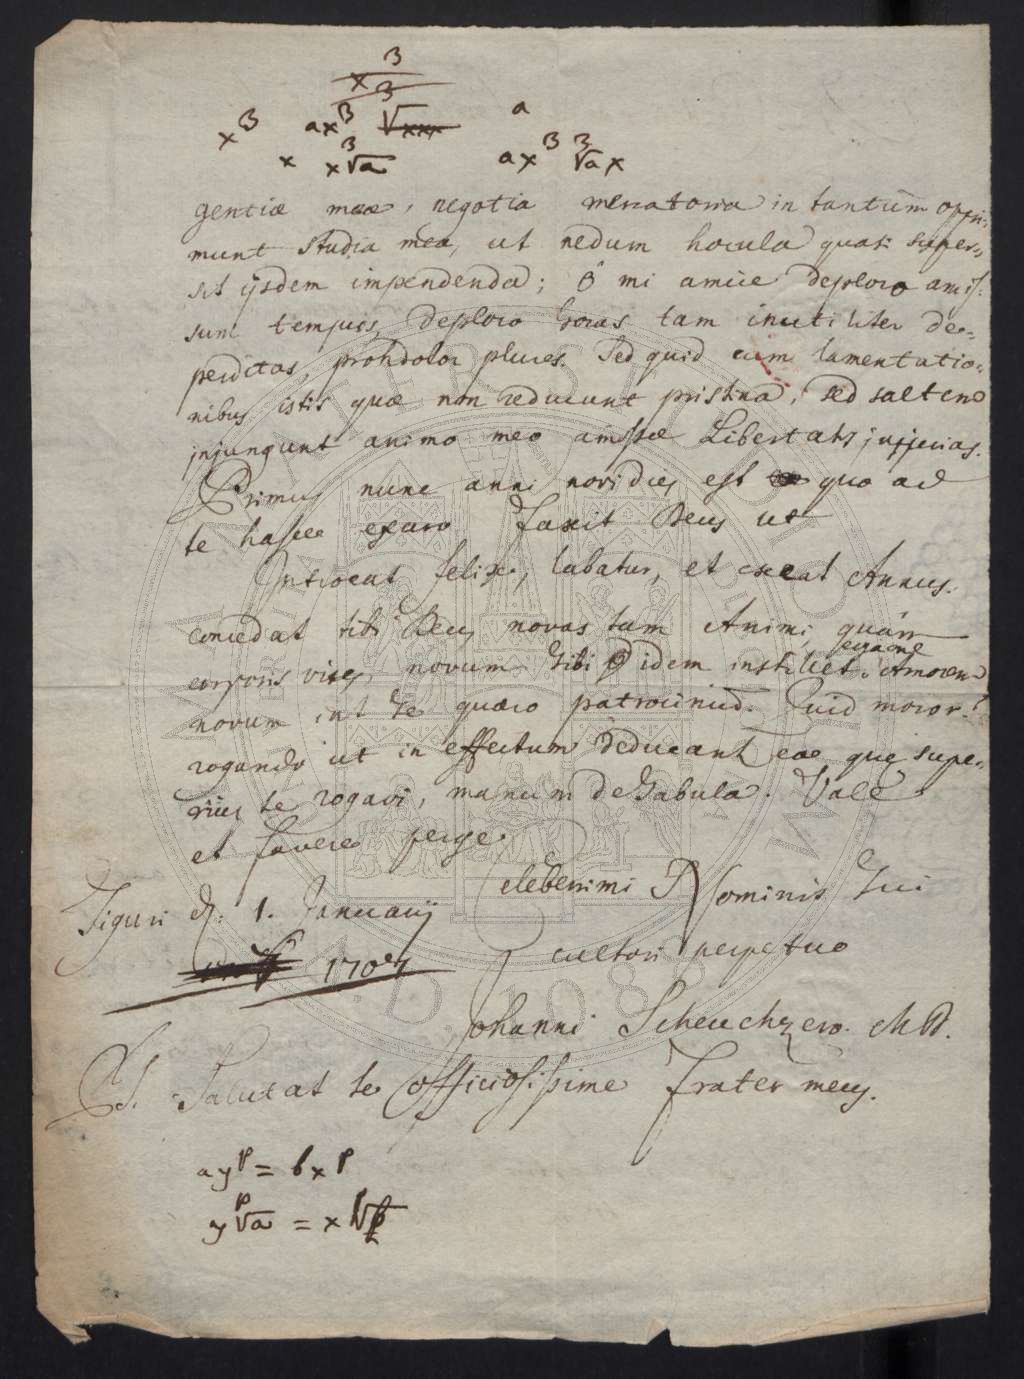 x³
x³ ax³ ∛xxx a
x x∛a ax³ ∛a x
gentiæ meæ, negotia mercatoria in tantum oppri-
munt studia mea, ut nedum horula quasi super-
sit ijsdem impendenda; ô mi amice deploro amis-
sum tempus, deploro horas tam inutiliter de-
perditas, prohdolor plures. Sed quid cum lamentatio-
nibus istis quæ non reducunt pristina, sed saltem
injungunt animo meo amissæ Libertatis
Primus nunc anni novi dies est quo ad
te hasce exaro faxit Deus ut
Introeat felix, labatur, et exeat Annus.
concedat tibi Deus novas tam Animi quàm
corporis vires, novum tibi idem instillet erga me Amorem
novum int te quæro patrocinium. Quid moror?
rogando ut in effectum deducant eæ quę supe-
rius te rogavi, manum de Tabula. Vale
et favere perge.
Celeberrimi Nominis Tui
Tiguri d. 1. Januarij
cultori perpetuo
1707
Johanni Scheuchzero. MD.
PS. Salutat te officiosissime frater meus.
ayᵖ = bxᵖ
y ᵖ√a = x ᵖ√b